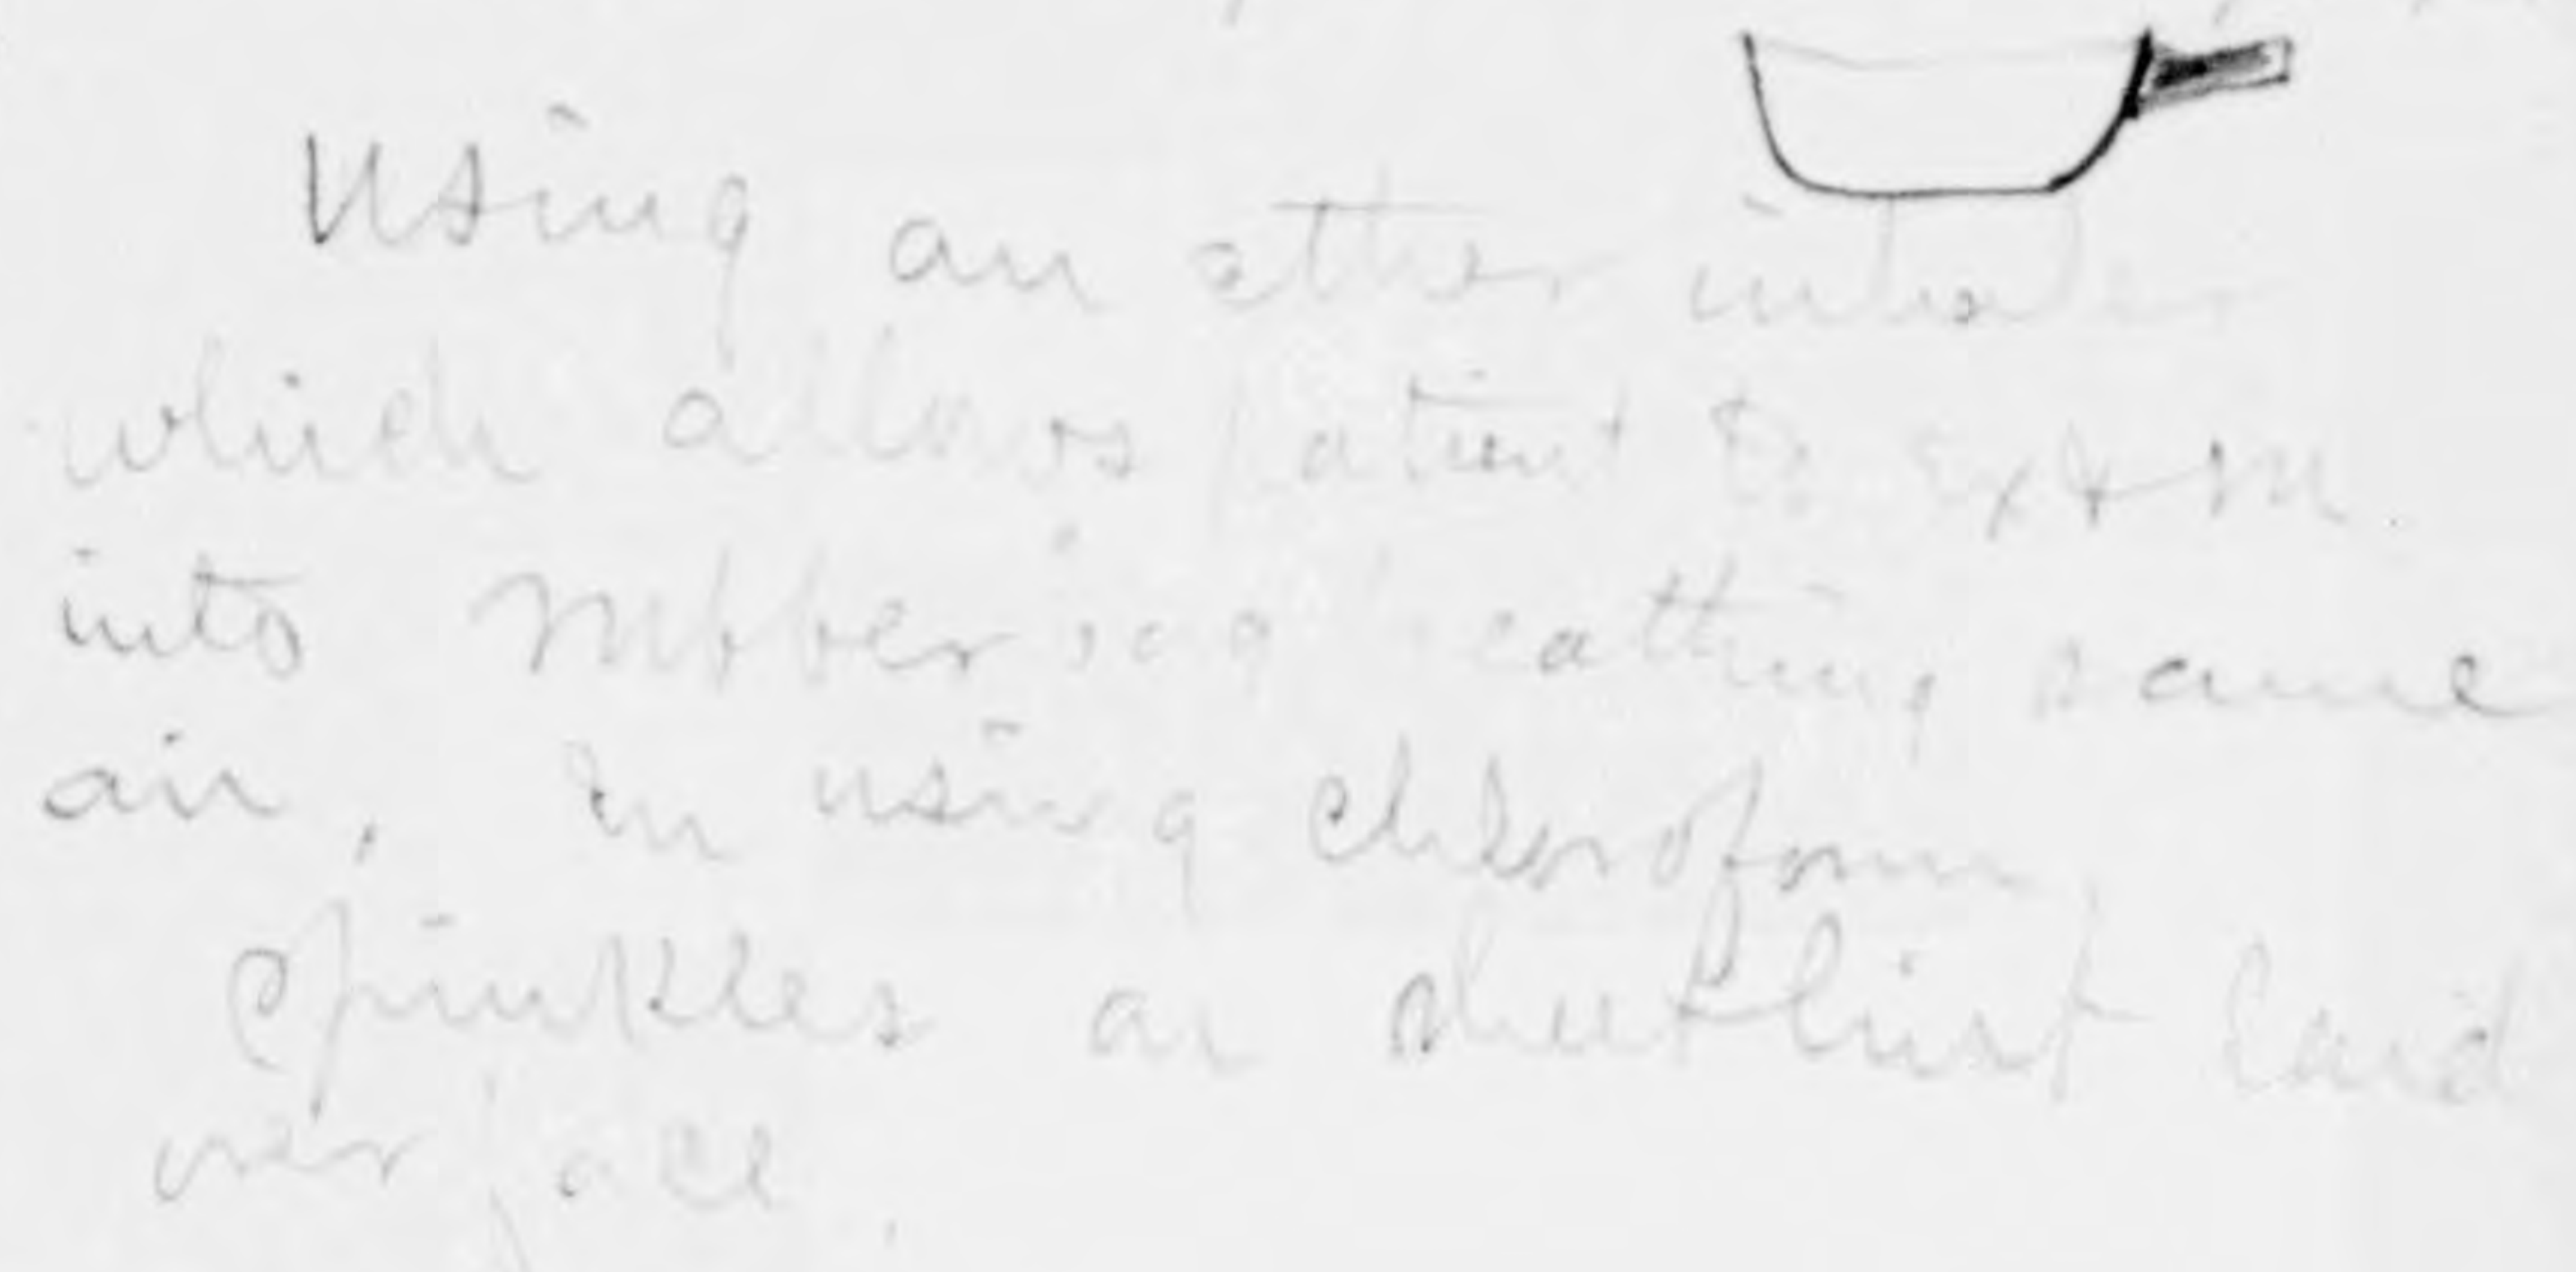 Using an ether inhaler
which allows patient to ex &
into rubber bag breathing same
air, In using Chloroform
Sprinkles on sheet lint laid
over face.